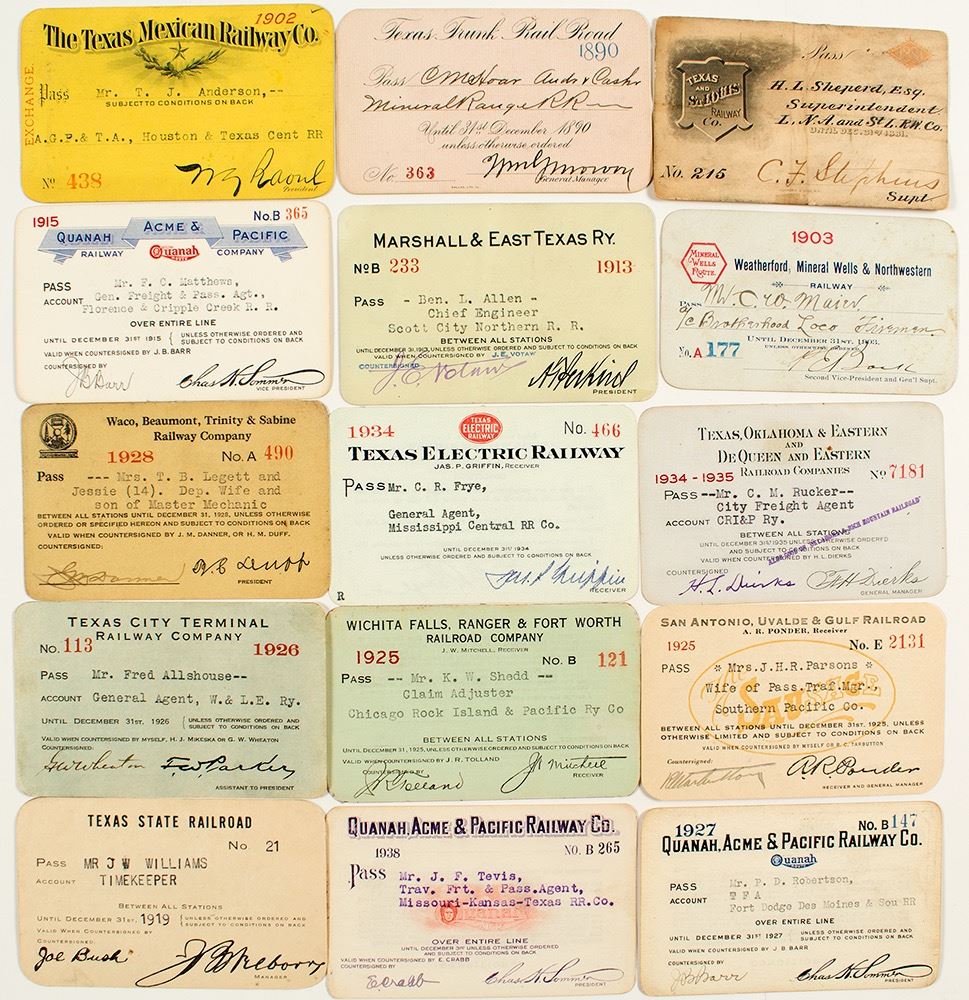 1902
The Texas Mexican Railway Co.
EXCHANGE.
Pass Mr. T. J. Anderson,--
SUBJECT TO CONDITIONS ON BACK
A.G.P.& T.A., Houston & Texas Cent RR
No 438
President
Texas Trunk Rail Road
1890
Pass C McHoar Audr & Cashr
Mineral Range RR
Until 31st December 1890
unless otherwise ordered
No. 363
General Manager
Pass
TEXAS
AND
ST. LOUIS
RAILWAY
Co.
H. L. Sheperd, Esq.
Superintendent
L., N.A. and St L. R.W. Co.
UNTIL DEC. 31st 1881.
No. 215
C. F. Stephens
Supt
1915
No. B 365
QUANAH ACME & PACIFIC
RAILWAY Quanah COMPANY
ROUTE
PASS Mr. F. C. Matthews,
ACCOUNT Gen. Freight & Pass. Agt.,
Florence & Cripple Creek R. R.
OVER ENTIRE LINE
UNTIL DECEMBER 31ST 1915 { UNLESS OTHERWISE ORDERED AND
SUBJECT TO CONDITIONS ON BACK
VALID WHEN COUNTERSIGNED BY J. B. BARR
COUNTERSIGNED BY
JB Barr Chas H. Sommer
VICE PRESIDENT
MARSHALL & EAST TEXAS RY.
No B 233 1913
PASS - Ben. L. Allen -
Chief Engineer
Scott City Northern R. R.
BETWEEN ALL STATIONS
UNTIL DECEMBER 31, 1913, UNLESS OTHERWISE ORDERED AND SUBJECT TO CONDITIONS ON BACK
VALID WHEN COUNTERSIGNED BY J. E. VOTAW
COUNTERSIGNED
J. E. Votaw
PRESIDENT
1903
MINERAL
WELLS
ROUTE.
Weatherford, Mineral Wells & Northwestern
RAILWAY
PASS Mr. Geo. Maier
a/c Brotherhood Loco Firemen
UNTIL DECEMBER 31ST, 1903,
UNLESS OTHERWISE ORDERED
No. A 177
Second Vice-President and Gen'l Supt.
Waco, Beaumont, Trinity & Sabine
Railway Company
1928 No. A 490
PASS --- Mrs. T. B. Legett and
Jessie (14). Dep. Wife and
son of Master Mechanic
BETWEEN ALL STATIONS UNTIL DECEMBER 31, 1928, UNLESS OTHERWISE
ORDERED OR SPECIFIED HEREON AND SUBJECT TO CONDITIONS ON BACK
VALID WHEN COUNTERSIGNED BY J. M. DANNER, OR H. M. DUFF.
COUNTERSIGNED:
JM Danner
PRESIDENT
1934
TEXAS
ELECTRIC
RAILWAY
No. 466
TEXAS ELECTRIC RAILWAY
JAS. P. GRIFFIN, RECEIVER
PASS Mr. C. R. Frye,
General Agent,
Mississippi Central RR Co.
UNTIL DECEMBER 31ST 1934
UNLESS OTHERWISE ORDERED AND SUBJECT TO CONDITIONS ON BACK
Jas. P. Griffin
RECEIVER
R
TEXAS, OKLAHOMA & EASTERN
AND
DE QUEEN AND EASTERN
RAILROAD COMPANIES
1934 - 1935 No 7181
PASS --Mr. C. M. Rucker--
City Freight Agent
ACCOUNT CRI&P Ry.
BETWEEN ALL STATIONS
UNTIL DECEMBER 31ST 1935 UNLESS OTHERWISE ORDERED
AND SUBJECT TO CONDITIONS ON BACK
VALID WHEN COUNTERSIGNED BY H.L. DIERKS
COUNTERSIGNED
H. L. Dierks
GENERAL MANAGER
TEXAS CITY TERMINAL
RAILWAY COMPANY
No. 113 1926
PASS Mr. Fred Allshouse--
ACCOUNT General Agent, W.& L.E. Ry.
UNTIL DECEMBER 31ST, 1926 { UNLESS OTHERWISE ORDERED AND
SUBJECT TO CONDITIONS ON BACK
VALID WHEN COUNTERSIGNED BY MYSELF, H. J. MIKESKA OR G. W. WHEATON
COUNTERSIGNED:
G.W. Wheaton F.W. Parker
ASSISTANT TO PRESIDENT
WICHITA FALLS, RANGER & FORT WORTH
RAILROAD COMPANY
J. W. MITCHELL, RECEIVER
1925 No. B 121
PASS -- Mr. K. W. Shedd --
Claim Adjuster
Chicago Rock Island & Pacific Ry Co
BETWEEN ALL STATIONS
UNTIL DECEMBER 31, 1925, UNLESS OTHERWISE ORDERED AND SUBJECT TO CONDITIONS ON BACK
VALID WHEN COUNTERSIGNED BY J. R. TOLLAND
COUNTERSIGNED BY
JR Tolland JW Mitchell
RECEIVER
SAN ANTONIO, UVALDE & GULF RAILROAD
A. R. PONDER, Receiver
1925 No. E 2131
PASS * Mrs. J.H.R. Parsons *
Wife of Pass. Traf. Mgr.,
Southern Pacific Co.
The SAUSAGE
BETWEEN ALL STATIONS UNTIL DECEMBER 31ST, 1925, UNLESS
OTHERWISE LIMITED AND SUBJECT TO CONDITIONS ON BACK
VALID WHEN COUNTERSIGNED BY MYSELF OR R. C. TARBUTTON
Countersigned:
RC Tarbutton A.R. Ponder
RECEIVER AND GENERAL MANAGER
TEXAS STATE RAILROAD
No 21
PASS MR J W WILLIAMS
ACCOUNT TIMEKEEPER
BETWEEN ALL STATIONS
UNTIL DECEMBER 31ST, 1919 { UNLESS OTHERWISE ORDERED AND
SUBJECT TO CONDITIONS ON BACK
VALID WHEN COUNTERSIGNED BY
COUNTERSIGNED:
Joe Bush
MANAGER
QUANAH, ACME & PACIFIC RAILWAY CO.
1938 NO. B 265
Pass Mr. J. F. Tevis,
Trav. Frt. & Pass. Agent,
Missouri-Kansas-Texas RR. Co.
Quanah
OVER ENTIRE LINE
UNTIL DECEMBER 31ST UNLESS OTHERWISE ORDERED
AND SUBJECT TO CONDITIONS ON BACK
VALID WHEN COUNTERSIGNED BY E. CRABB
COUNTERSIGNED BY
E. Crabb Chas H. Sommer
PRESIDENT
1927 No. B 147
QUANAH, ACME & PACIFIC RAILWAY CO.
Quanah
PASS Mr. P. D. Robertson,
ACCOUNT T F A
Fort Dodge Des Moines & Sou RR
OVER ENTIRE LINE
UNTIL DECEMBER 31ST 1927 { UNLESS OTHERWISE ORDERED AND
SUBJECT TO CONDITIONS ON BACK
VALID WHEN COUNTERSIGNED BY J. B. BARR
COUNTERSIGNED BY
JB Barr Chas H. Sommer
PRESIDENT